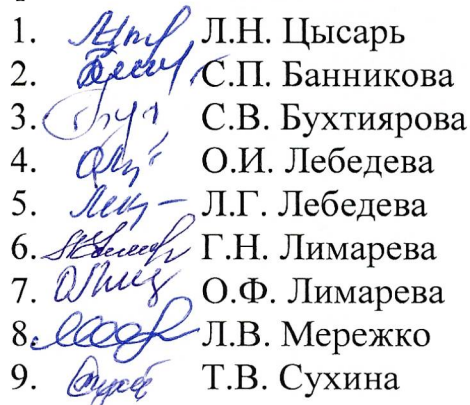 1. Л.Н. Цысарь
2. С.П. Банникова
3. С.В. Бухтиярова
4. О.И. Лебедева
5. Л.Г. Лебедева
6. Г.Н. Лимарева
7. О.Ф. Лимарева
8. Л.В. Мережко
9. Т.В. Сухина